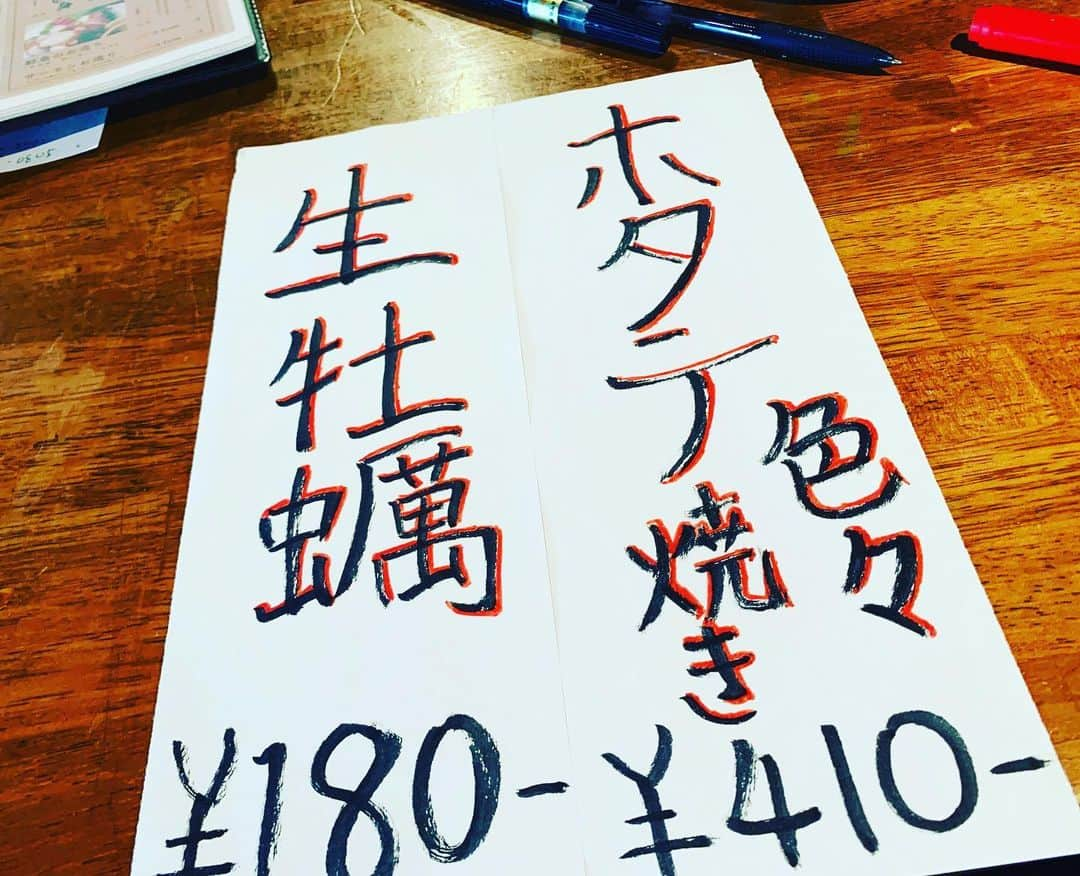 ホタテ焼き
色々
¥410-
生牡蠣
¥180-